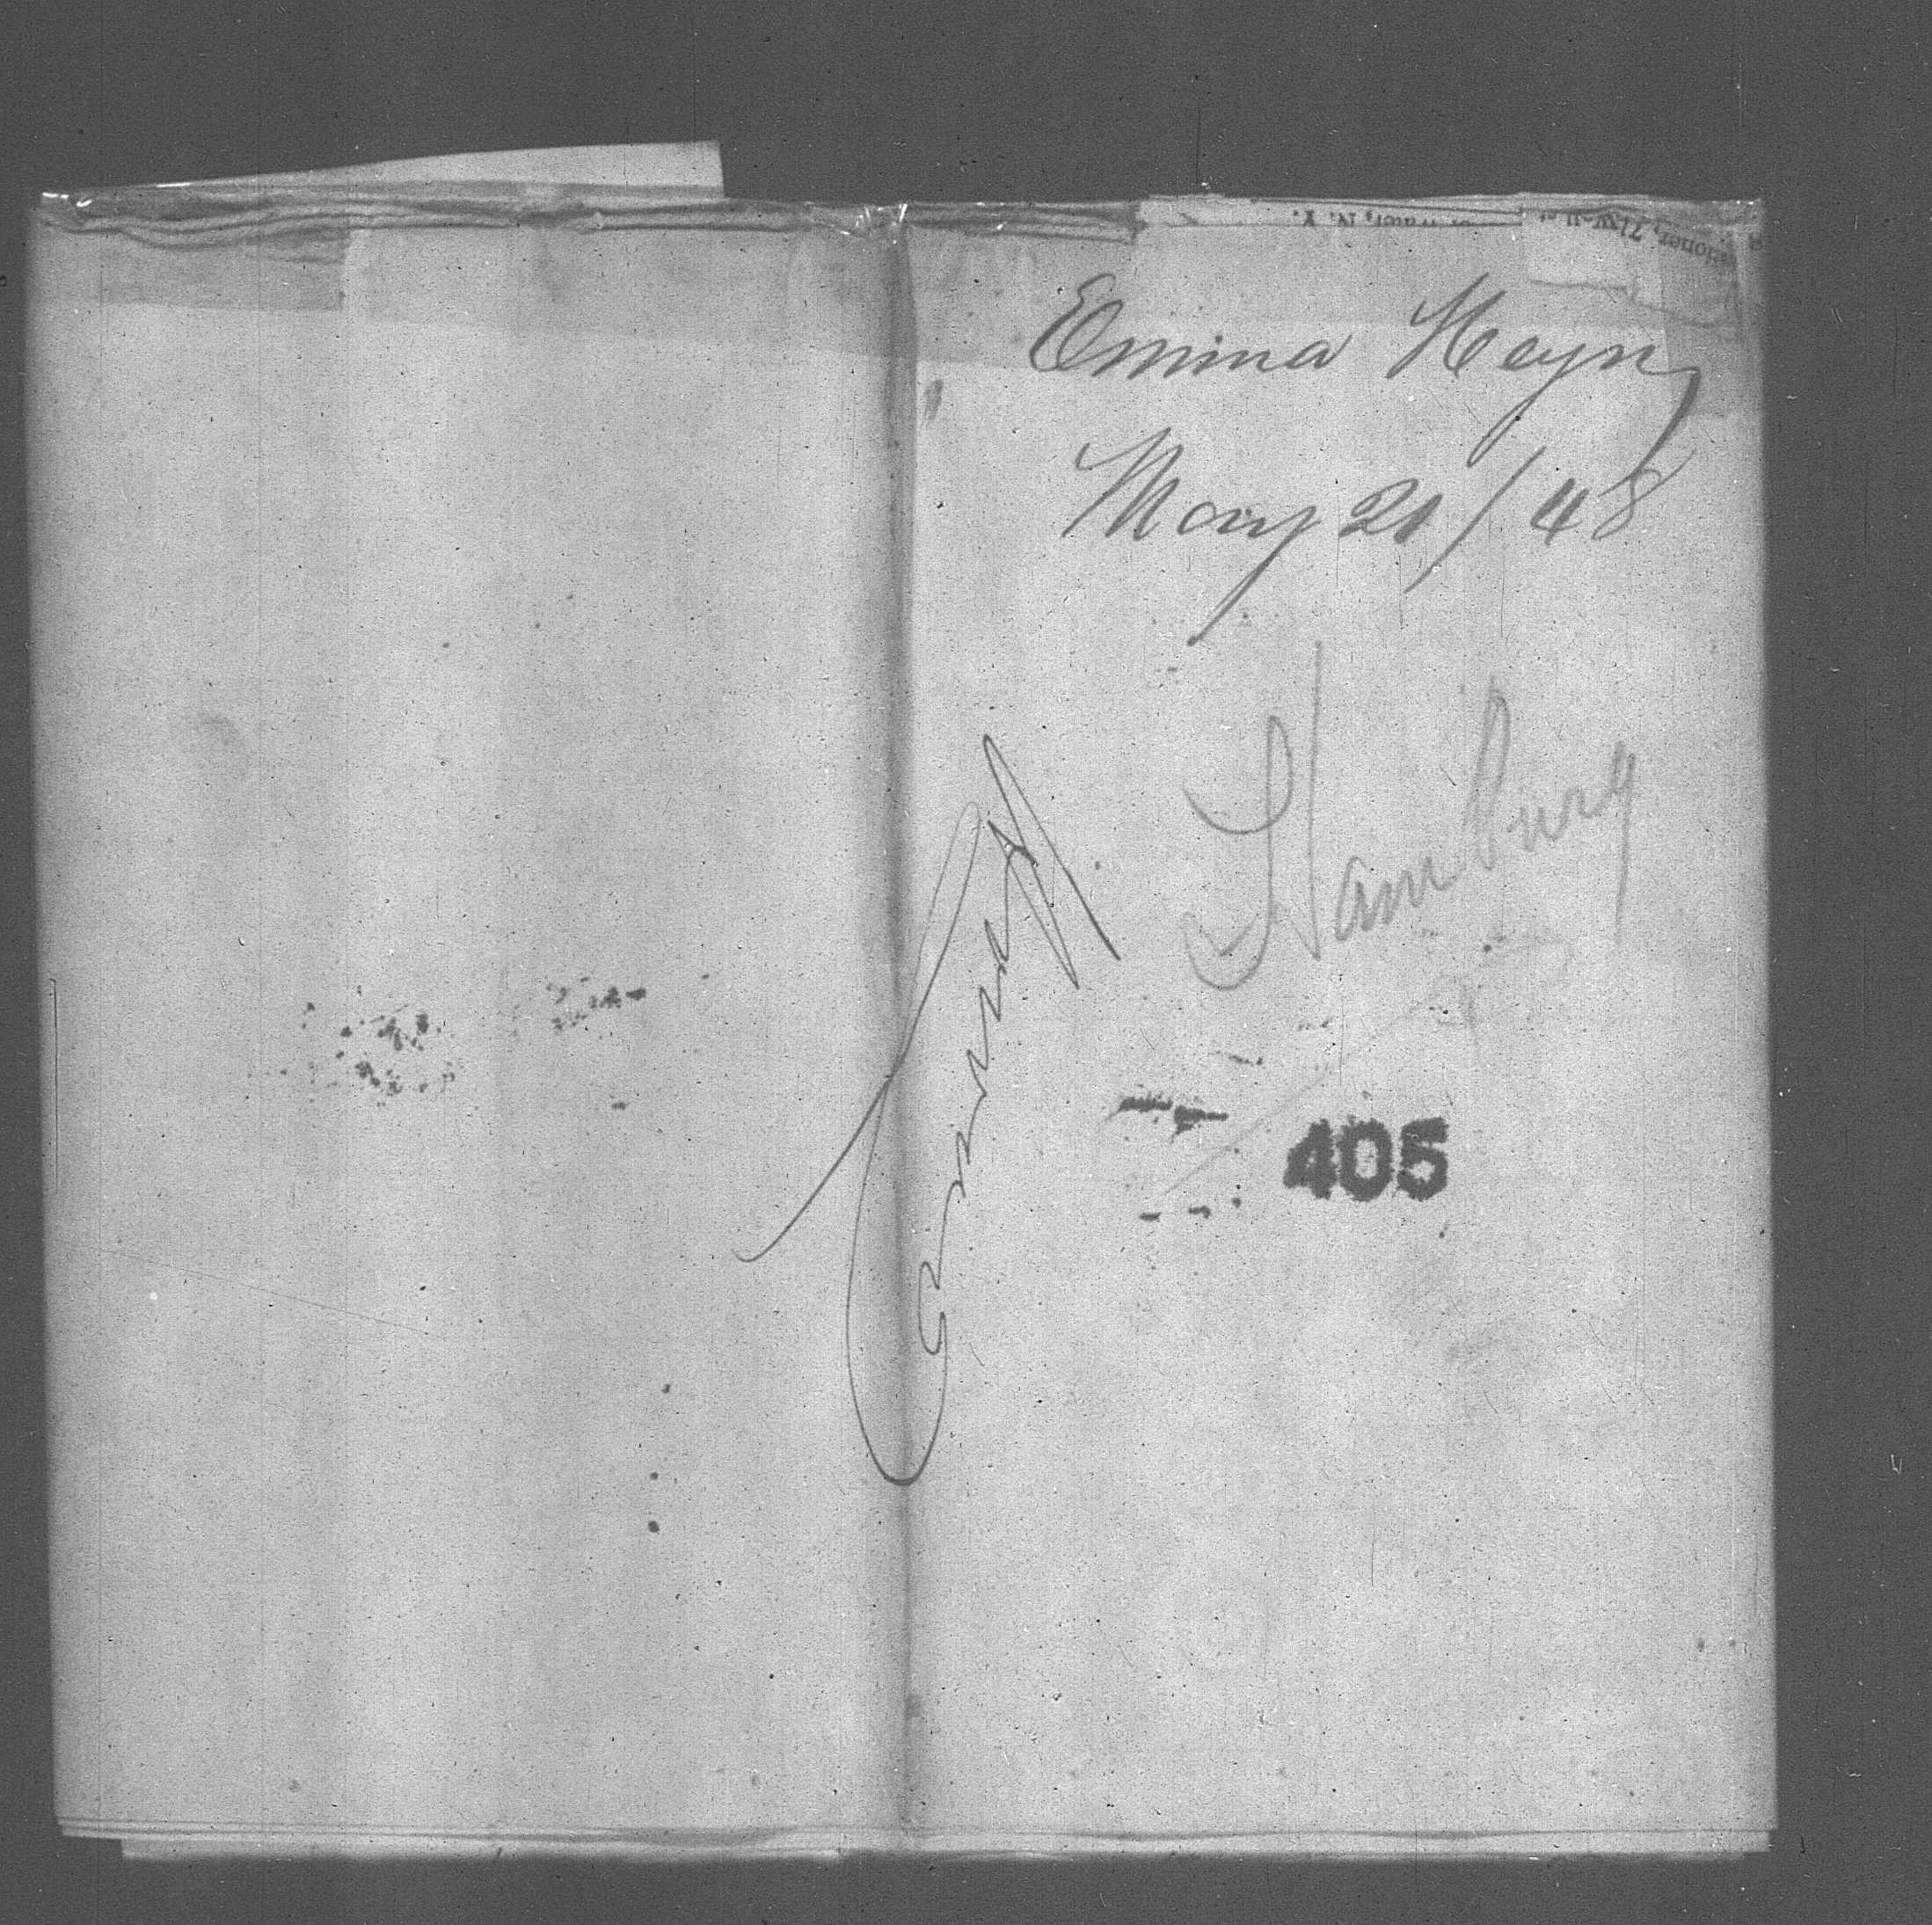 Emma Heyn
May 21/48
Hamburg
405